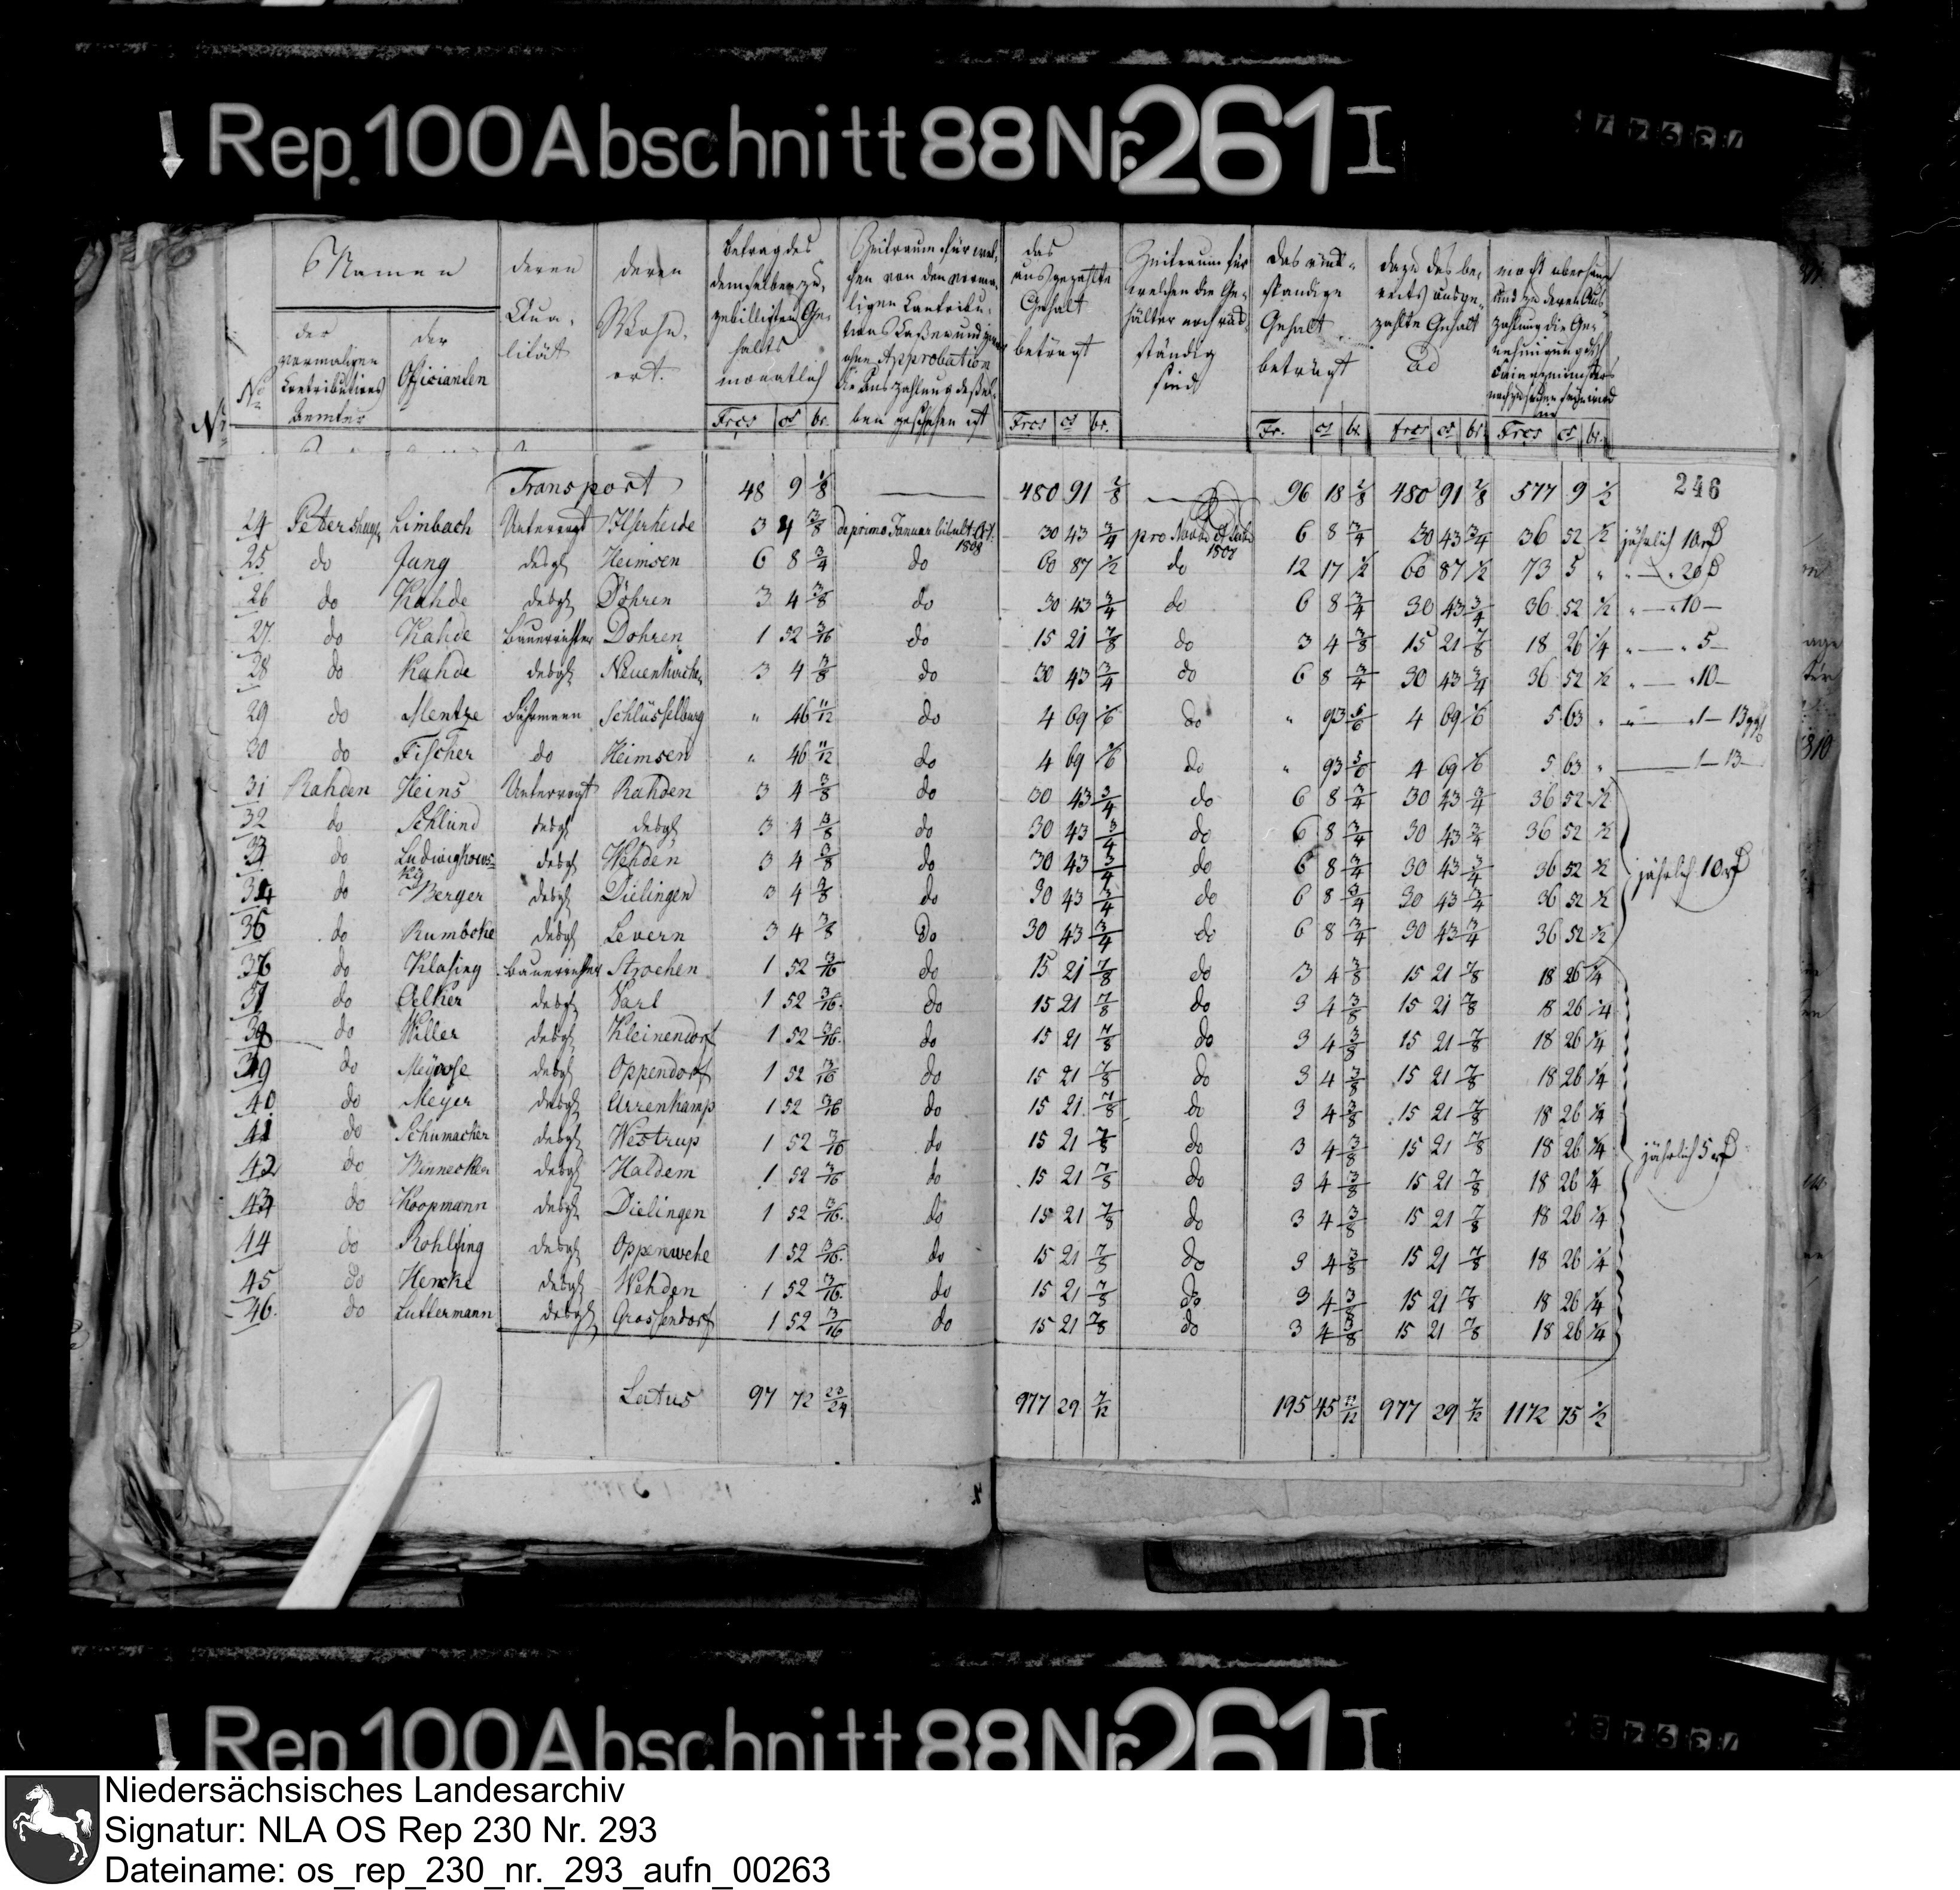 Rep. 100 Abschnitt 88 Nr. 261 I
Namen
der vermaligen Contributions Aemter
der Officianten
deren Qualität
deren Wohnort.
Betrag des demselben zugebilligten Gehalts monatlich
Zeitraum für welchen von den vermaligen Contributions Caßen und zwar ohne Approbation die Auszahlung deßelben geschehen ist
das ausgezahlte Gehalt beträgt
Zeitraum für welchen die Gehälter noch rückständig sind
Das rückständige Gehalt beträgt
dazu das bereits ausgezahlte Gehalt ad
macht überhaupt und zu deren Auszahlung die Genehmigung des Finanzministers
No
Frcs cs br. Frcs cs br. Fr. cs br. frcs cs br. Frcs cs br.
246
Transport 48 9 1/8 — 480 91 2/8 — 96 18 2/8 480 91 2/8 577 9 1/2
24 Petershag. Limbach Untervogt Ilserheide 3 4 3/8 de primo Januar bis ult. Oct. 1808 30 43 3/4 pro Novbr et Decbr 1808 6 8 3/4 30 43 3/4 36 52 1/2 jährlich 10 rß
25 do Jung desgl Heimsen 6 8 3/4 do 60 87 1/2 do 12 17 1/2 60 87 1/2 73 5 " " — " 20 ß
26 do Kahde desgl Döhren 3 4 3/8 do 30 43 3/4 do 6 8 3/4 30 43 3/4 36 52 1/2 " — " 10 —
27 do Kahde Bauerrichter Döhren 1 52 3/16 do 15 21 7/8 do 3 4 3/8 15 21 7/8 18 26 1/4 " — " 5 —
28 do Kahde desgl Neuenkirchen 3 4 3/8 do 30 43 3/4 do 6 8 3/4 30 43 3/4 36 52 1/2 " — " 10 —
29 do Mentze Fährmann Schlüsselburg " 46 11/12 do 4 69 1/6 do " 93 5/6 4 69 1/6 5 63 " " — " 1 — 13 ggl
30 do Fischer do Heimsen " 46 11/12 do 4 69 1/6 do " 93 5/6 4 69 1/6 5 63 " — 1 — 13 —
31 Rahden Heins Untervogt Rahden 3 4 3/8 do 30 43 3/4 do 6 8 3/4 30 43 3/4 36 52 1/2
32 do Schlünd desgl desgl 3 4 3/8 do 30 43 3/4 do 6 8 3/4 30 43 3/4 36 52 1/2
33 do Ludwighowsky desgl Wehden 3 4 3/8 do 30 43 3/4 do 6 8 3/4 30 43 3/4 36 52 1/2 jährlich 10 rß
34 do Berger desgl Dielingen 3 4 3/8 do 30 43 3/4 do 6 8 3/4 30 43 3/4 36 52 1/2
36 do Rumboke desgl Levern 3 4 3/8 do 30 43 3/4 do 6 8 3/4 30 43 3/4 36 52 1/2
36 do Klasing Bauerrichter Stroehen 1 52 3/16 do 15 21 7/8 do 3 4 3/8 15 21 7/8 18 26 1/4
37 do Oelker desgl Varl 1 52 3/16. do 15 21 7/8 do 3 4 3/8 15 21 7/8 18 26 1/4
38 do Willer desgl Kleinendorf 1 52 3/16. do 15 21 7/8 do 3 4 3/8 15 21 7/8 18 26 1/4
39 do desgl Oppendorf 1 52 3/16 do 15 21 7/8 do 3 4 3/8 15 21 7/8 18 26 1/4
40 do Meyer desgl Arrenkamp 1 52 3/16 do 15 21 7/8 do 3 4 3/8 15 21 7/8 18 26 1/4
41 do Schumacher desgl Westrup 1 52 3/16 do 15 21 7/8 do 3 4 3/8 15 21 7/8 18 26 1/4 jährlich 5 rß
42 do desgl Haldem 1 52 3/16 do 15 21 7/8 do 3 4 3/8 15 21 7/8 18 26 1/4
43 do Koopmann desgl Dielingen 1 52 3/16. do 15 21 7/8 do 3 4 3/8 15 21 7/8 18 26 1/4
44 do Rohlfing desgl Oppenwehe 1 52 3/16. do 15 21 7/8 do 3 4 3/8 15 21 7/8 18 26 1/4
45 do Hencke desgl Wehden 1 52 3/16. do 15 21 7/8 do 3 4 3/8 15 21 7/8 18 26 1/4
46. do Luttermann desgl Grossendorf 1 52 3/16 do 15 21 7/8 do 3 4 3/8 15 21 7/8 18 26 1/4
Latus 97 72 23/24 977 29 7/12 195 45 11/12 977 29 7/12 1172 75 1/2
Rep. 100 Abschnitt 88 Nr. 261 I
Niedersächsisches Landesarchiv
Signatur: NLA OS Rep 230 Nr. 293
Dateiname: os_rep_230_nr._293_aufn_00263